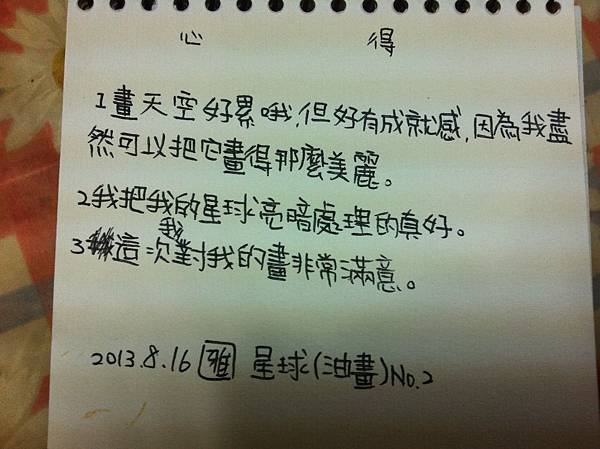 心得
1畫天空好累哦，但好有成就感，因為我盡
然可以把它畫得那麼美麗。
2我把我的星球亮暗處理的真好。
3這次我對我的畫非常滿意。
2013.8.16 雅 星球(油畫)No.2